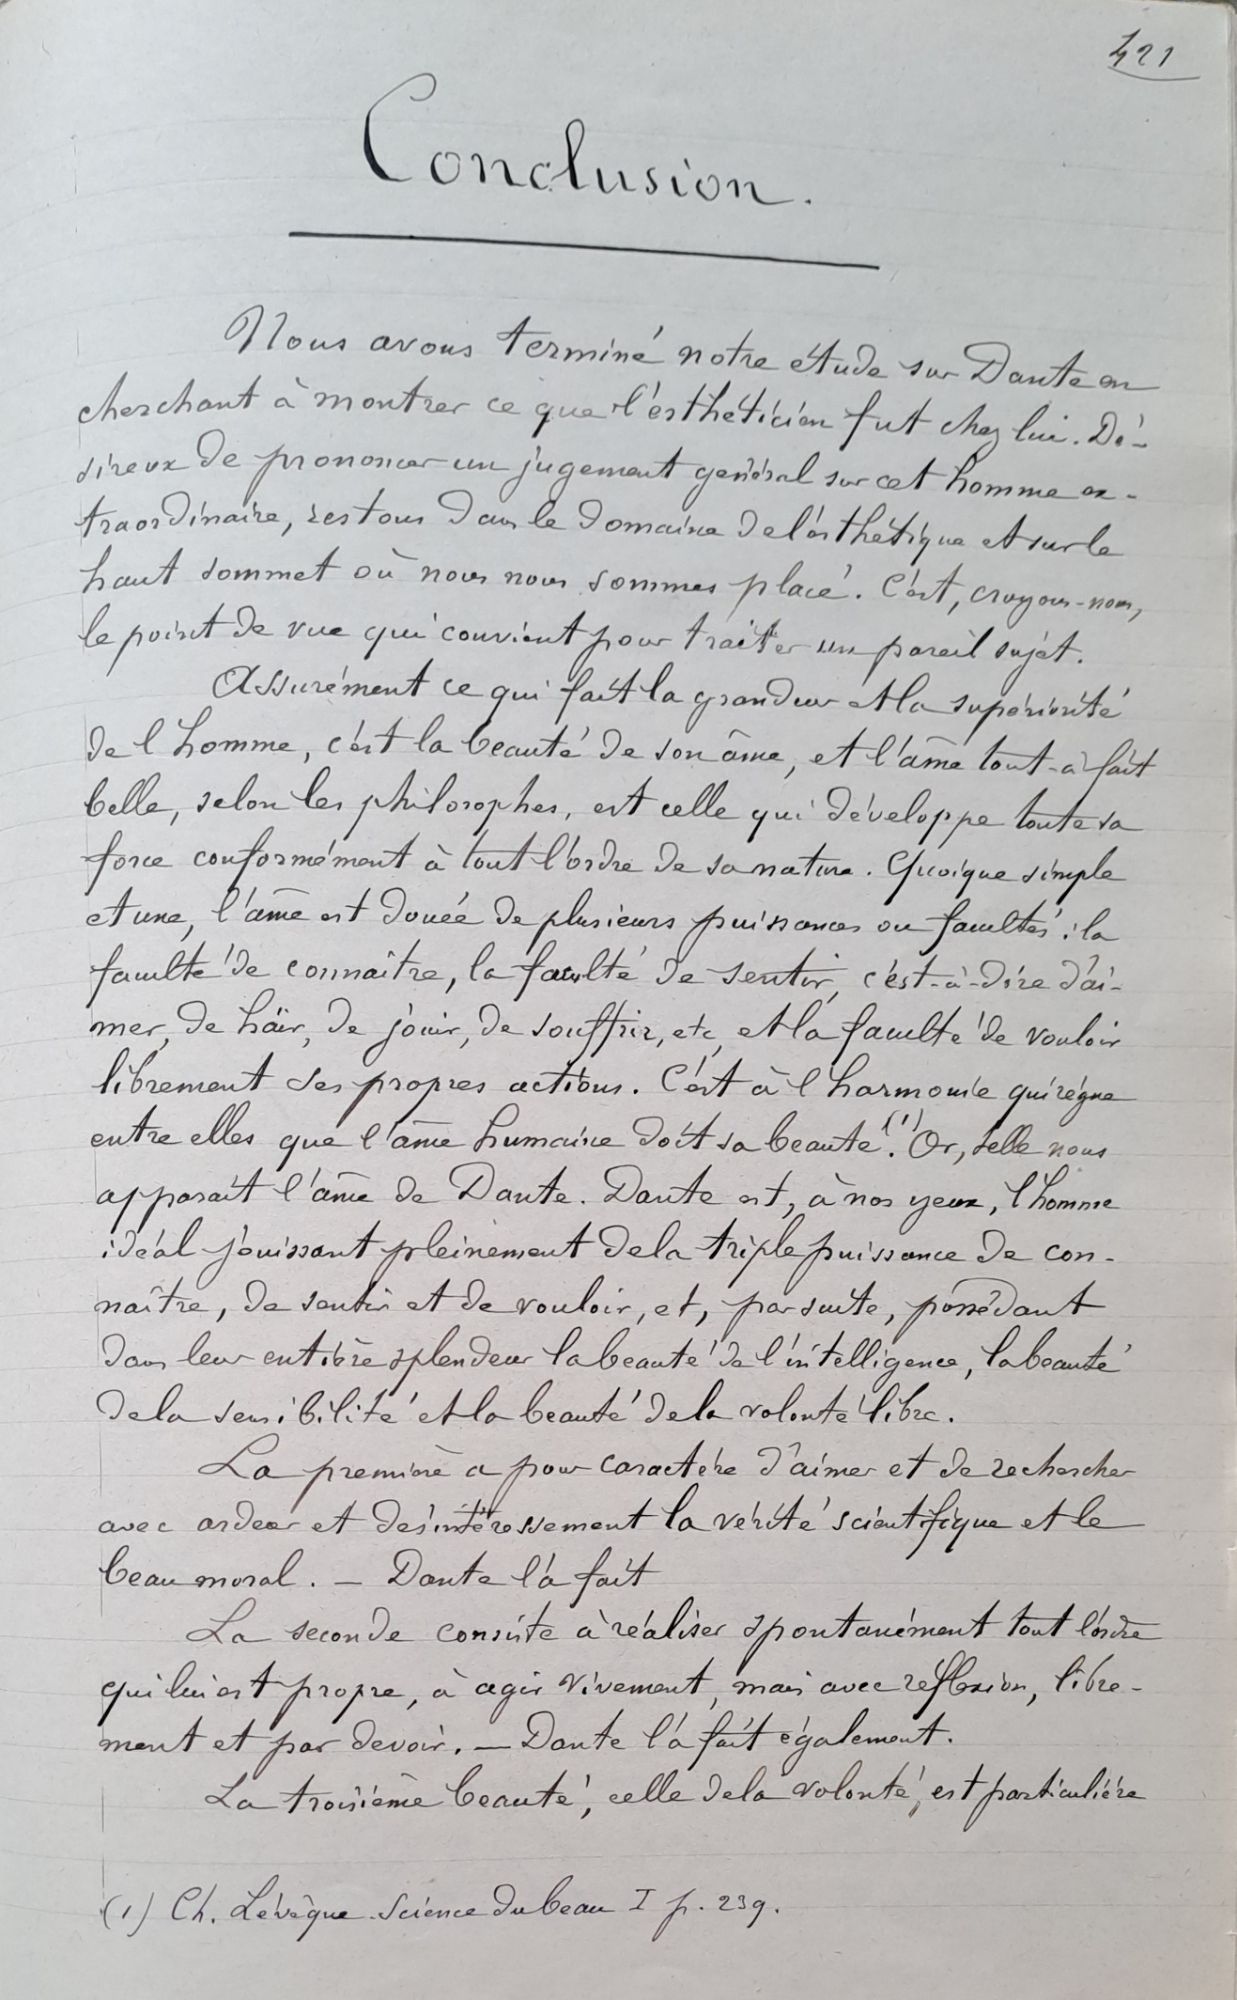 421
Conclusion.
Nous avons terminé notre étude sur Dante en
cherchant à montrer ce que l'esthéticien fut chez lui. Dé-
sireux de prononcer un jugement général sur cet homme ex-
traordinaire, restons dans le domaine de l'esthétique et sur le
haut sommet où nous nous sommes placé. C'est, croyons-nous,
le point de vue qui convient pour traiter un pareil sujet.
Assurément ce qui fait la grandeur et la supériorité
de l'homme, c'est la beauté de son âme, et l'âme tout-à-fait
belle, selon les philosophes, est celle qui développe toute sa
force conformément à tout l'ordre de sa nature. Quoique simple
et une, l'âme est douée de plusieurs puissances ou facultés : la
faculté de connaître, la faculté de sentir, c'est-à-dire d'ai-
mer, de haïr, de jouir, de souffrir, etc, et la faculté de vouloir
librement ses propres actions. C'est à l'harmonie qui règne
entre elles que l'âme humaine doit sa beauté.(1) Or, telle nous
apparaît l'âme de Dante. Dante est, à nos yeux, l'homme
idéal jouissant pleinement de la triple puissance de con-
naître, de sentir et de vouloir, et, par suite, possédant
dans leur entière splendeur la beauté de l'intelligence, la beauté
de la sensibilité et la beauté de la volonté libre.
La première a pour caractère d'aimer et de rechercher
avec ardeur et désintéressement la vérité scientifique et le
beau moral. — Dante l'a fait
La seconde consiste à réaliser spontanément tout l'ordre
qui lui est propre, à agir vivement, mais avec réflexion, libre-
ment et par devoir. — Dante l'a fait également.
La troisième beauté, celle de la volonté, est particulière
(1) Ch. Lévêque. Science du beau I p. 239.